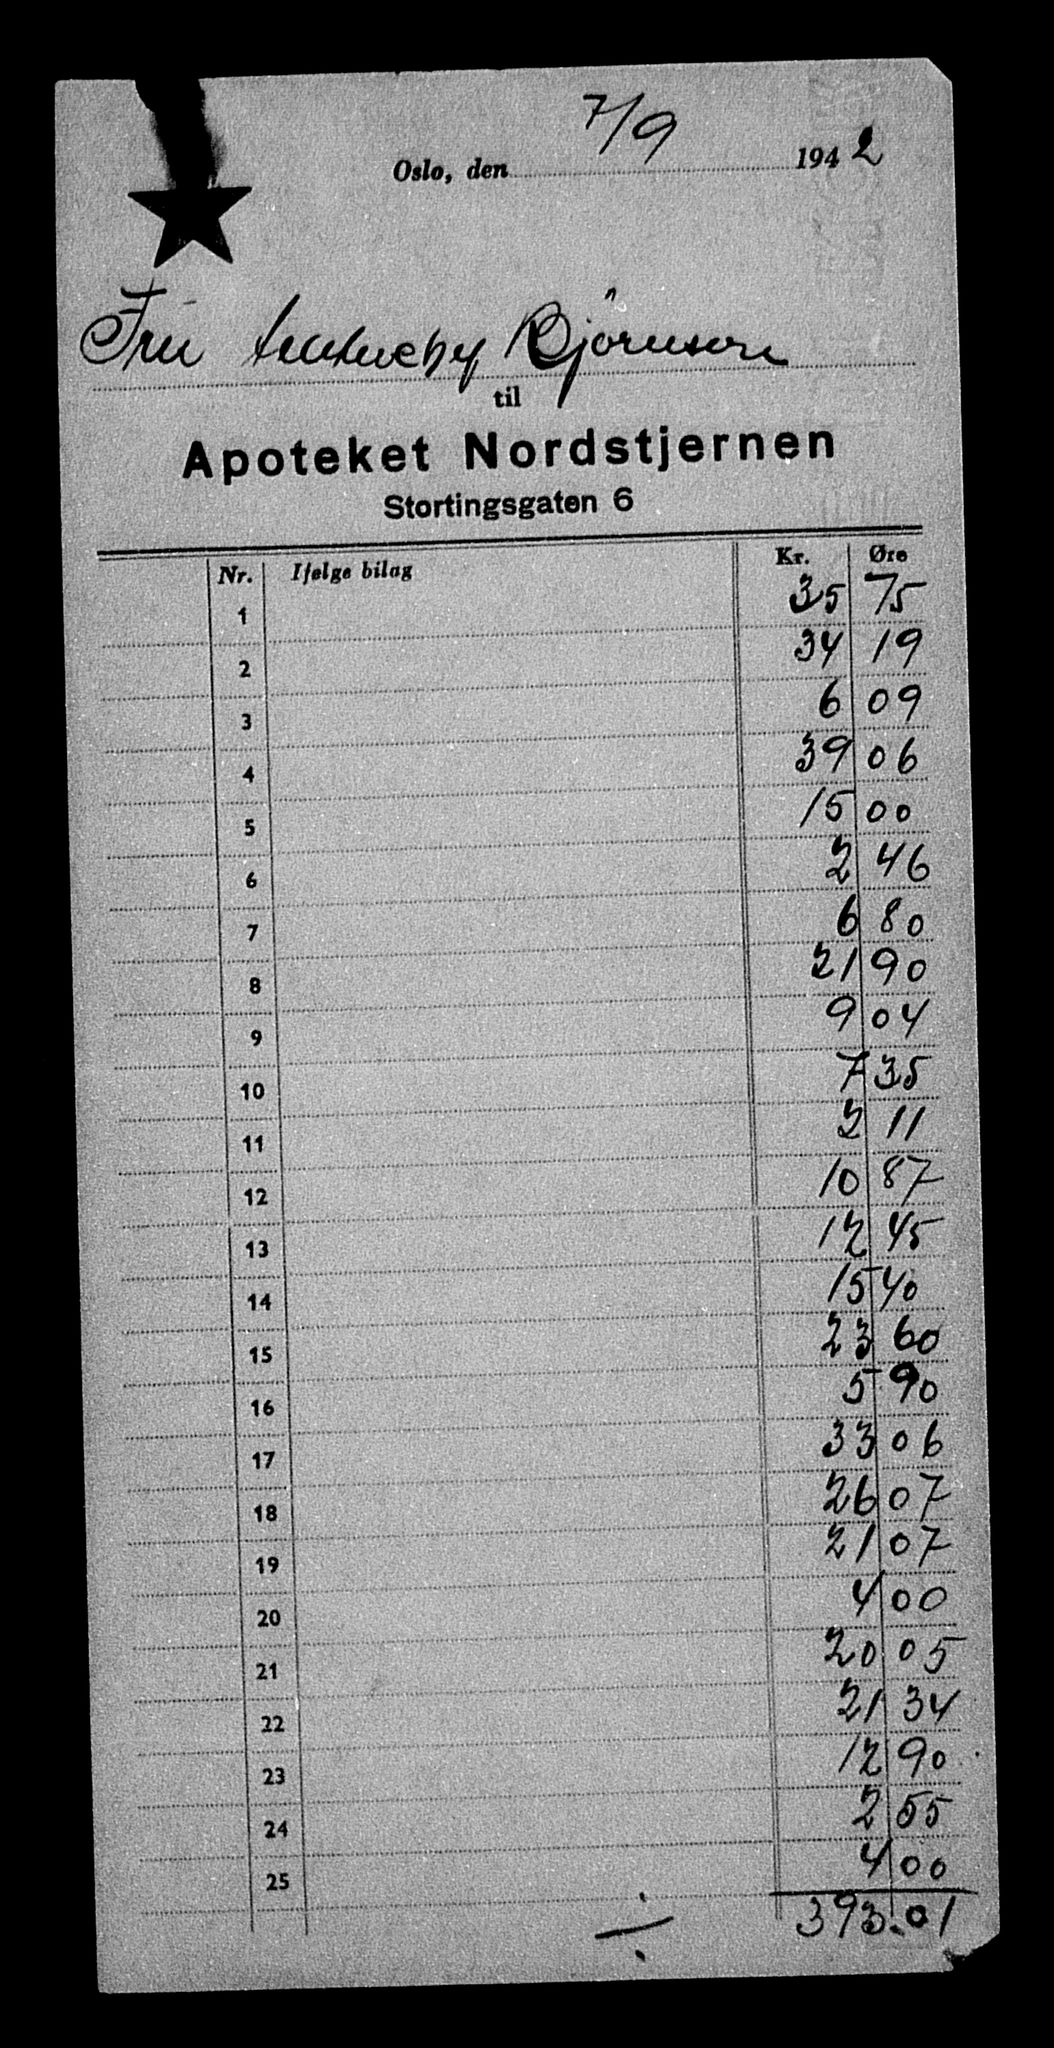 7/9
Oslo, den 1942
Fru Bjørnson
til
Apoteket Nordstjernen
Stortingsgaten 6
Nr. Ifølge bilag Kr. Øre
1 35 75
2 34 19
3 6 09
4 39 06
5 15 00
6 2 46
7 6 80
8 21 90
9 9 04
10 7 35
11 2 11
12 10 87
13 12 45
14 15 40
15 23 60
16 5 90
17 33 06
18 26 07
19 21 07
20 4 00
21 20 05
22 21 34
23 12 90
24 2 55
25 4 00
393.01